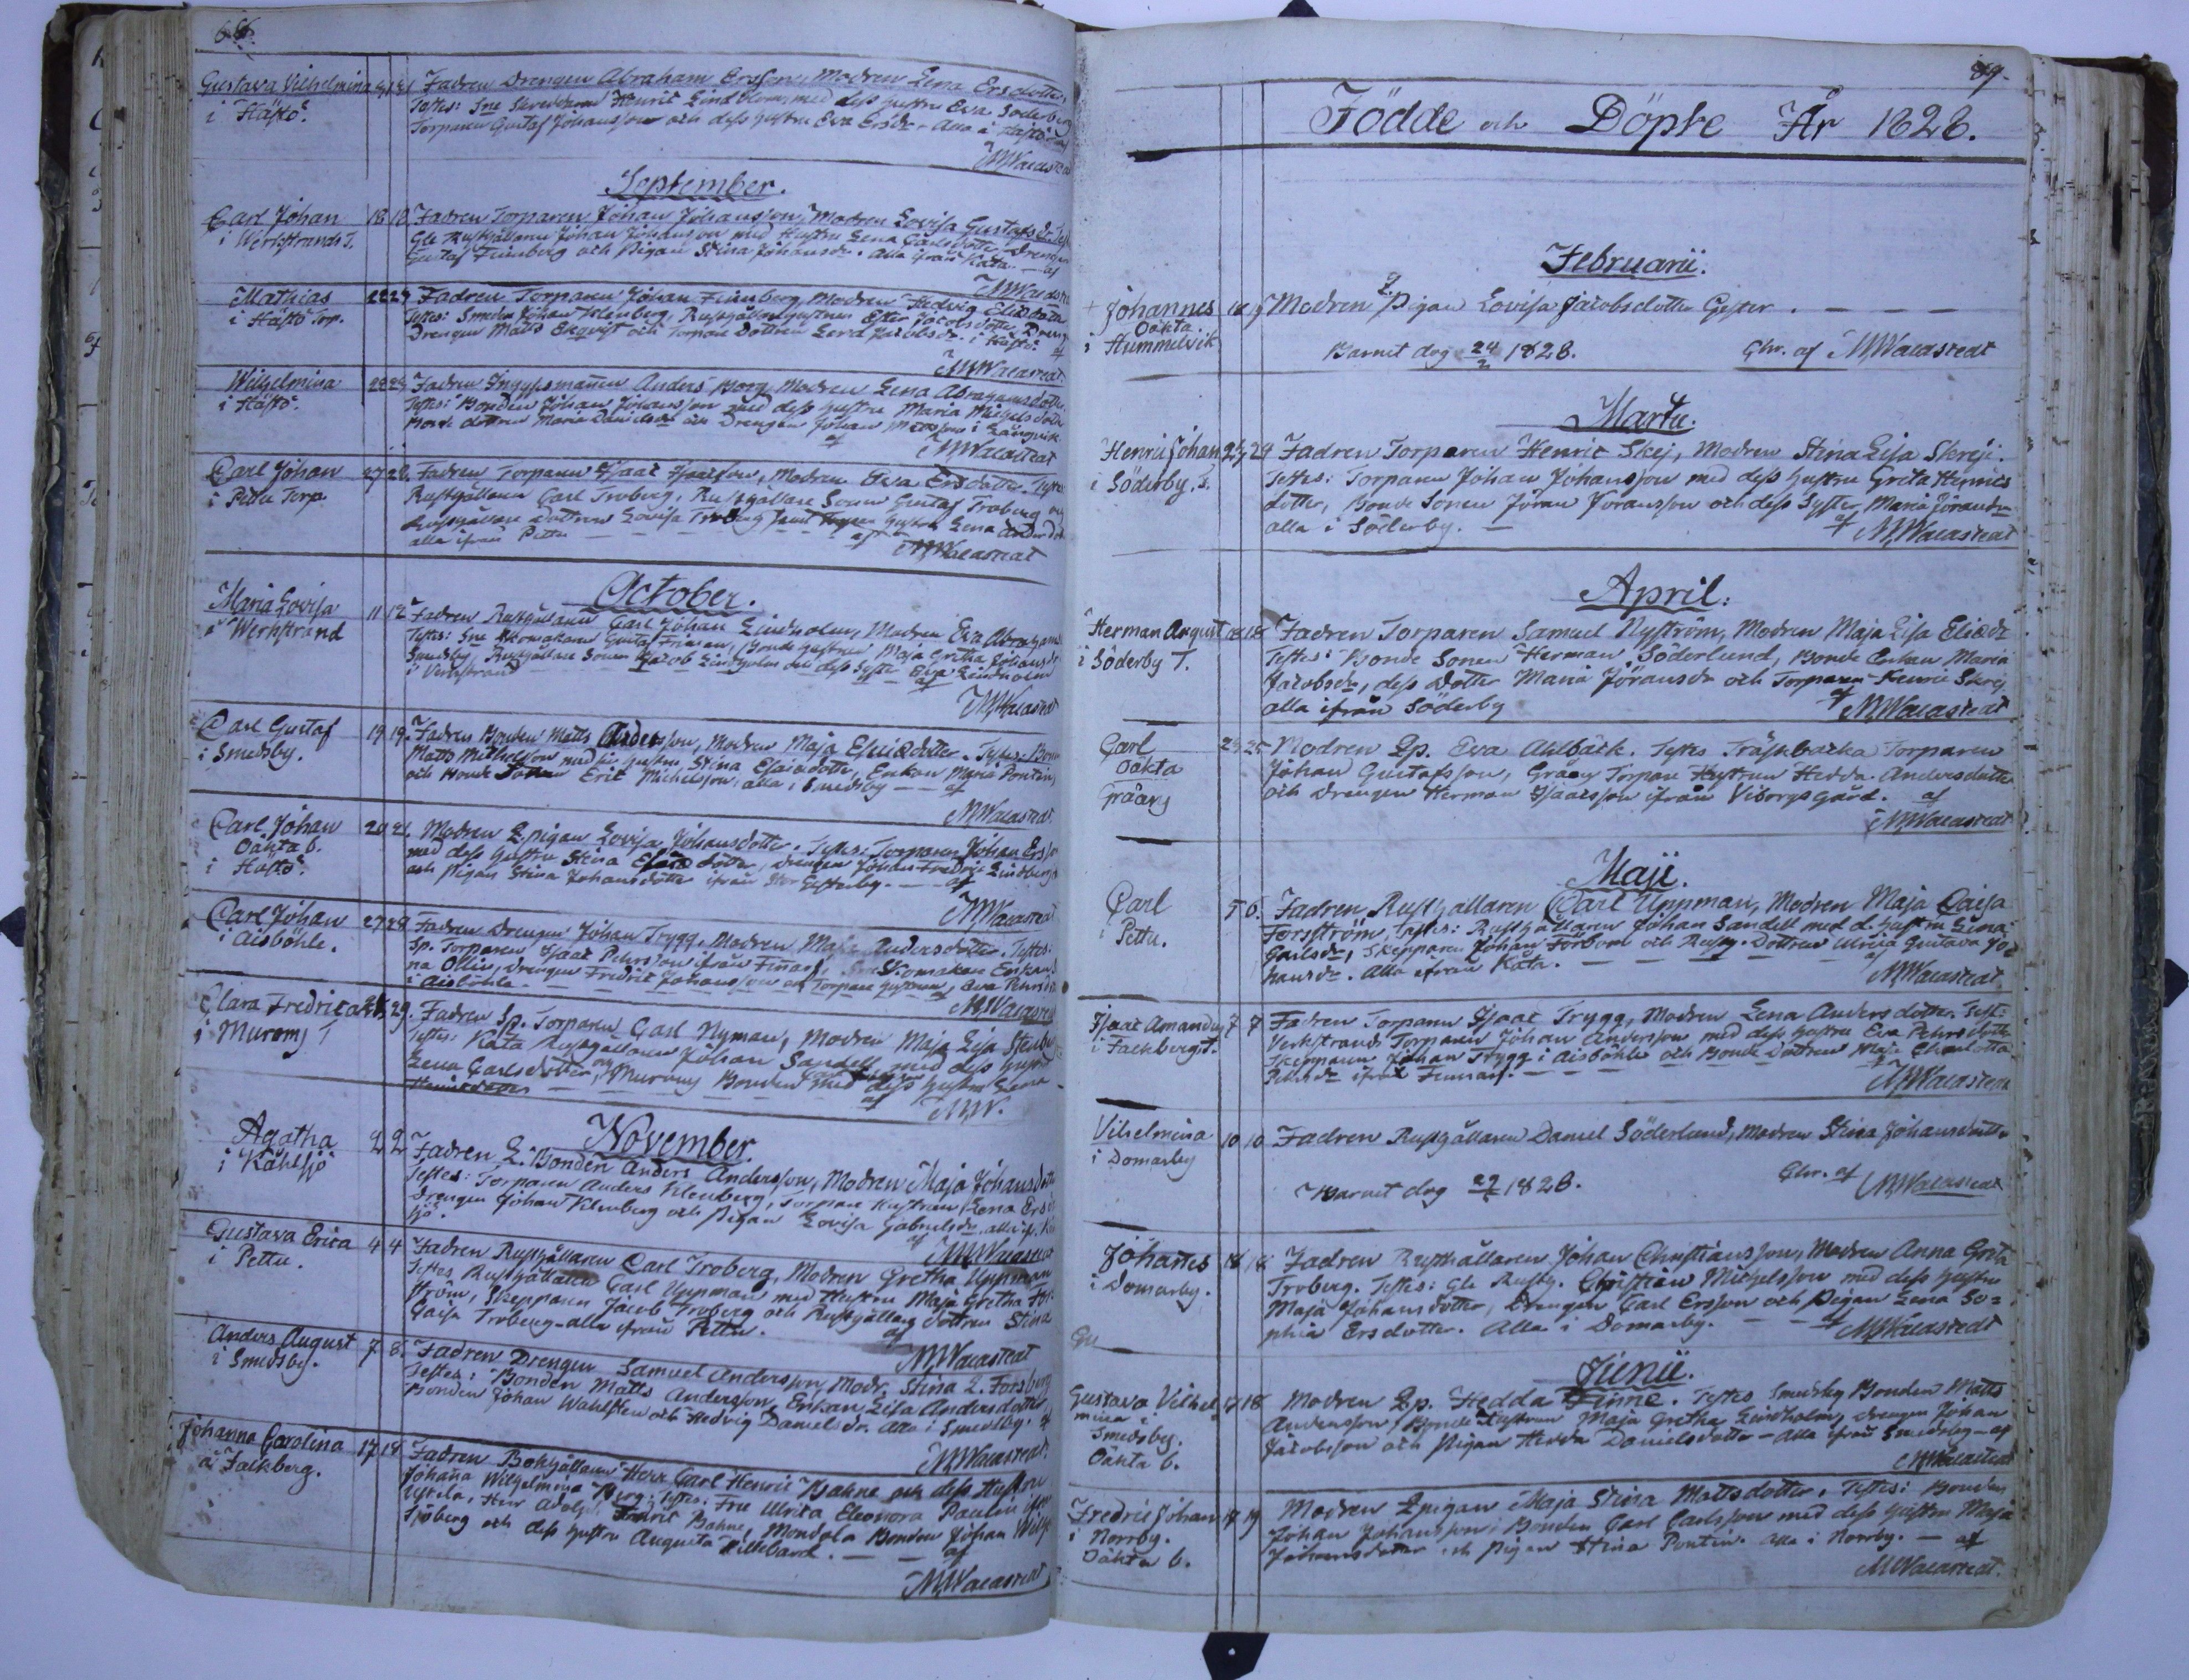 68.
Gustava Vilhelmina
i Hästö.
Fadren Drengen Abraham Ersson, Modren Lena Ersdotter,
Testes: Henric Lindblom, med dess hustru Eva Söderberg
Torparen Gustaf Johansson och dess hustru Eva Ersdr - Alla i Hästö
MWacastedt
September.
Carl Johan 18 18
i Werkstrands T.
Fadren Torparen Johan Johansson, Modren Lovisa Gustafsdr
Gle Rusthållaren Johan Johansson med Hustru Lena Carlsdotter, Drengen
Gustaf Feimberg och Pigan Stina Johansdr. Alla ifrån Kåta. af
MWacastedt
Mathias
i Hästö Torp.
Fadren Torparen Johan Feimberg, Modren Hedvig Eliædotter
Testes: Smeden Johan Vilenberg, Ester Jacobsdotter, Dreng
Drengen Matts Ekqvist och Torpare Dottren Lovisa Jacobsdr. i Hästö. af
MWacastedt
Wilhelmina
i Hästö.
Fadren Anders Borg, Modren Lena Abrahamsdotter.
Testes: Bonden Johan Johansson med dess hustru Maria Michelsdotter
Bonde dottren Maria Danielsdr och Drengen Johan Mattsson i Långvik
af MWacastedt
Carl Johan 27 28.
i Pettu Torp.
Fadren Torparen Isaac Isacsson, Modren Eva Ersdotter. Testes
Rusthållaren Carl Troberg, Rusthållare Sonen Gustaf Troberg och
Rusthållare Dottren Lovisa Troberg samt hustru Lena
alla ifrån Pettu af
MWacastedt
October.
Maria Lovisa 11 12
i Werkstrand
Fadren Rusthållaren Carl Johan Lindholm, Modren Eva Abrahams
Testes: Gustaf Friman, Bonde hustrun Maja Gretha Johansdr
Smedsby, Rusthållare Sonen Jacob Lindholm och dess Syster Eva Lindholm
i Verkstrand af
MWacastedt
Carl Gustaf 19 19.
i Smedsby.
Fadren Bonden Matts Andersson, Modren Maja Esaiædotter. Testes: Bonden
Matts Michelsson med sin hustru Stina Esaiædotter, Enkan Maria Pontin,
och Bonde Sonen Eric Michelsson, alla i Smedsby — af
MWacastedt
Carl Johan 20 21.
Oäkta b.
i Hästö.
Modren L. pigan Lovisa Johansdotter. Testes: Torparen Johan Ersson
med dess hustru Stina Esaiædotter, Drengen Johan Fredric Lindberg
och Pigan Stina Johansdotter ifrån Stor Gesterby. — af
MWacastedt
Carl Johan 27 28
i Aisböhle.
Fadren Drengen Johan Trygg, Modren Maja Andersdotter. Testes:
Sp. Torparen Isaac Pehrsson ifrån Finnas, Skomakare Enkan
na Ollin, Drengen Fredric Johansson och Torpare hustrun, Eva Pehrsdr
i Aisböhle.
MWacastedt
Clara Fredrica 28 29.
i Muromj T
Fadren Sp. Torparen Carl Nyman, Modren Maja Lisa Stenberg
Testes: Kåta Rusthållaren Johan Sandell med dess hustru
Lena Carlsdotter, och Muromj Bonden med dess hustru Lena
Henricsdotter af
M.W.
November.
Agatha 2 2
i Kåhlsjö
Fadren L. Bonden Anders Andersson, Modren Maja Johansdotter
Testes: Torparen Anders Vilenberg, Torpare Hustrun Lena Ersdr
Drengen Johan Vilenberg och Pigan Lovisa Gabrielsdr, alla if. Kåhl
sjö. af
MWacastedt
Gustava Erica 4 4
i Pettu.
Fadren Rusthållaren Carl Troberg, Modren Gretha Uppman
Testes Rusthållaren Carl Uppman med Hustru Maja Gretha Fors-
ström, Skepparen Jacob Troberg och Rusthållare dottren Stina
Caisa Troberg - alla ifrån Pettu. af
MWacastedt
Anders August 7 8.
i Smedsby.
Fadren Drengen Samuel Andersson, Modr. Stina L. Forsberg
Testes: Bonden Matts Andersson, Enkan Lisa Andersdotter
Bonden Johan Wahlsten och Hedvig Danielsdr. Alla i Smedsby. af
MWacastedt
Johanna Carolina 17 18
å Falkberg.
Fadren Bokhållaren Herr Carl Henric Bahne och dess Hustru
Johanna Wilhelmina Berg: Testes: Fru Ulrica Eleonora Paulin ifrån
Herr Adolf Fredric Bahne, Mondola Bonden Johan
Sjöberg och dess hustru Augusta Lillebäck. — af
MWacastedt
89.
Födde och Döpte År 1828.
Februarii.
+ Johannes 18 19
Oäkta.
i Hummelvik
Modren L. Pigan Lovisa Jacobsdotter Gester.
Barnet dog 24/2 1828. Chr. af MWacastedt
Martii.
Henric Johan 23 24
i Söderby. T.
Fadren Torparen Henric Skej, Modren Stina Lisa Skreji.
Testes: Torparen Johan Johansson med dess hustru Greta Henrics
dotter, Bonde Sonen Jöran Joransson och dess Syster, Maria Jöransdr
alla i Söderby. — af MWacastedt
April.
Herman August 18 18
i Söderby T.
Fadren Torparen Samuel Nyström, Modren Maja Lisa Eliædr
Testes: Bonde Sonen Herman Söderlund, Bonde Enkan Maria
Jacobsdr, dess Dotter Maria Jöransdr och Torparen Henric Skrej
alla ifrån Söderby af MWacastedt
Carl 25
Oäkta
Gräng
Modren Lp. Eva Ahlbäck. Testes Träskbacka Torparen
Johan Gustafsson, Gräng Torpare Hustrun Hedda Andersdotter
och Drengen Herman Isaacsson ifrån Viborgsgård. af
MWacastedt
Maji.
Carl 5 6.
i Pettu.
Fadren Rusthållaren Carl Uppman, Modren Maja Caisa
Forsström, Testes: Rusthållaren Johan Sandell med d. hustru Lena
Carlsdr, Skepparen Johan Forbom och Rusth. Dottren Ulrica Gustava Jo-
hansdr. Alla ifrån Kåta. af
MWacastedt
Isaac Amandus 7 7
i Falkberg T.
Fadren Torparen Isaac Trygg, Modren Lena Andersdotter. Test:
Verkstrands Torparen Johan Andersson med dess hustru Eva Pehrsdotter
Skepparen Johan Trygg i Aisböhle och Bonde Dottren Maja Charlotta
Pehrsdr ifrån Finnas. af
MWacastedt
Vilhelmina 10 10
i Domarby
Fadren Rusthållaren Daniel Söderlund, Modren Stina Johansdotter
Barnet dog 1828. Chr. af MWacastedt
Johannes 18 18
i Domarby.
Fadren Rusthållaren Johan Christiansson, Modren Anna Greta
Troberg. Testes: Gle Rusth. Christian Michelsson med dess hustru
Maja Johansdotter, Drengen Carl Ersson och Pigan Lena So-
phia Ersdotter. Alla i Domarby. — af MWacastedt
Gu
Junii.
Gustava Vilhel 17 18
mina i
Smedsby.
Oäkta b.
Modren Lp. Hedda Finne. Testes Smedsby Bonden Matts
Andersson, Bonde Hustrun Maja Gretha Lindholm, Drengen Johan
Jacobsson och Pigan Hedda Danielsdotter - Alla ifrån Smedsby - af
MWacastedt
Fredric Johan 19
i Norrby.
Oäkta b.
Modren L pigan Maja Stina Mattsdotter. Testes: Bonden
Johan Johansson, Bonden Carl Carlsson med dess hustru Maja
Johansdotter och Pigan Stina Pontin. Alla i Norrby. — af
MWacastedt.